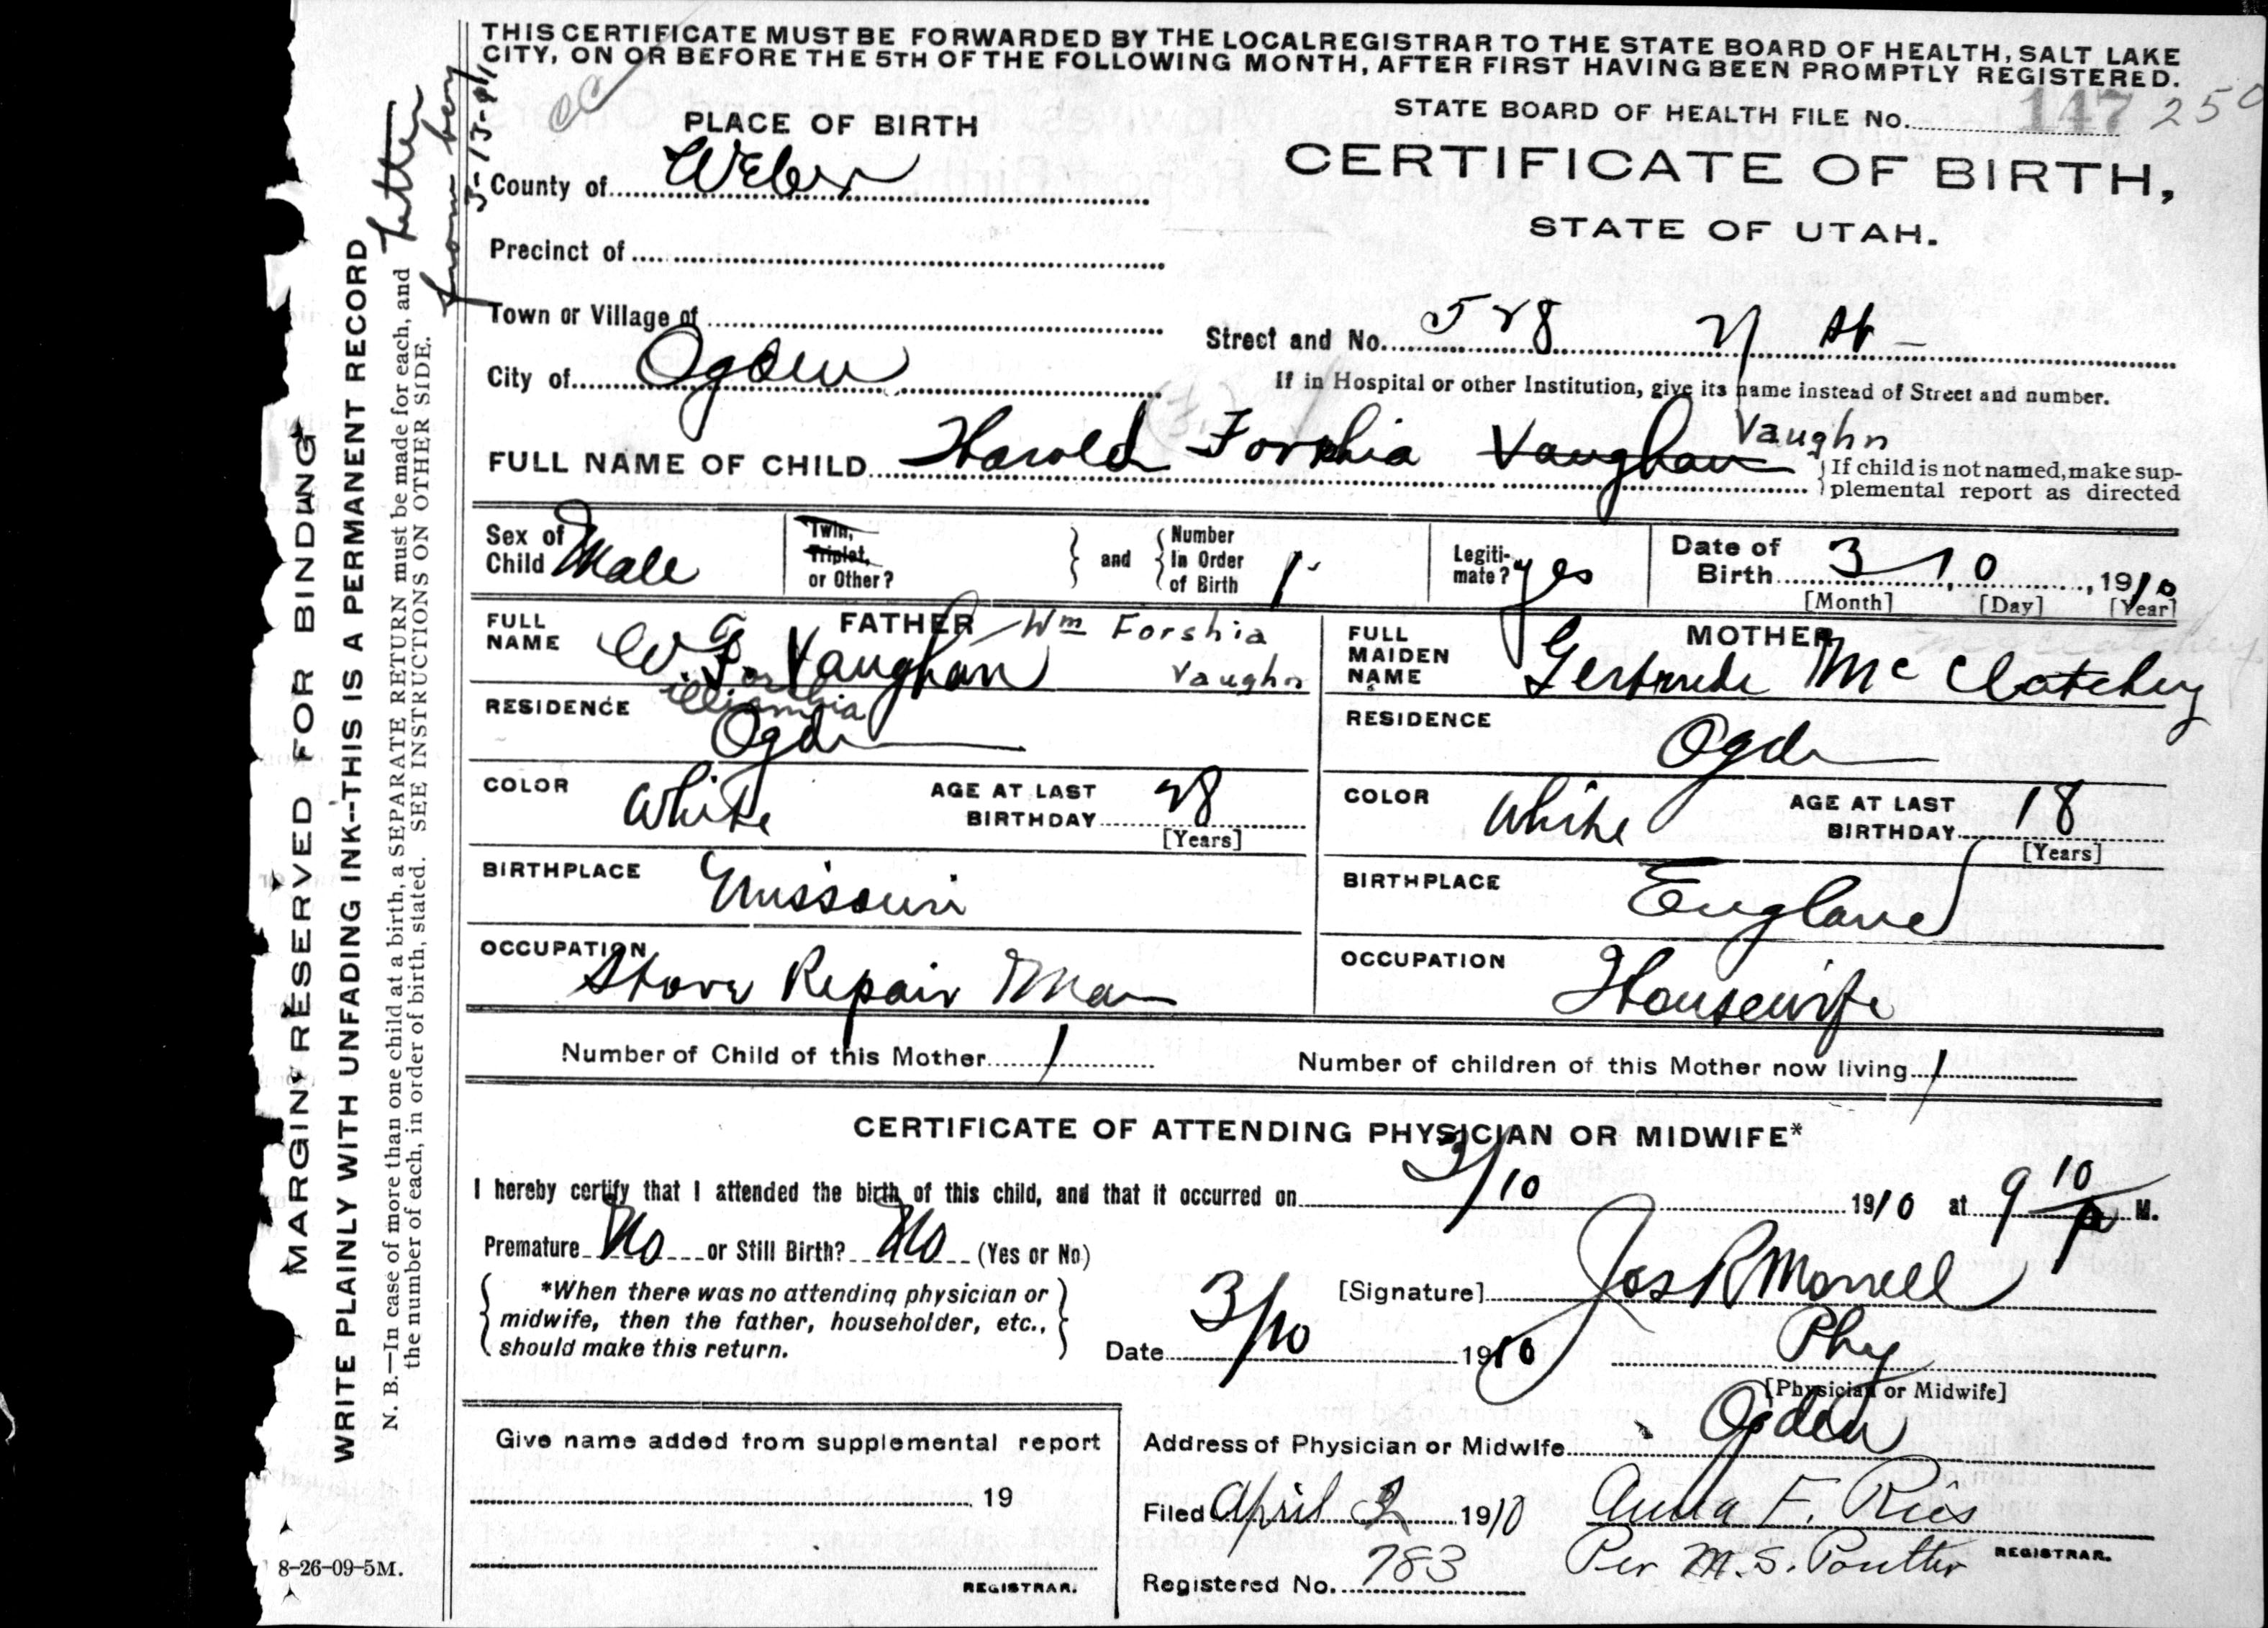 THIS CERTIFICATE MUST BE FORWARDED BY THE LOCAL REGISTRAR TO THE STATE BOARD OF HEALTH, SALT LAKE
CITY, ON OR BEFORE THE 5TH OF THE FOLLOWING MONTH, AFTER FIRST HAVING BEEN PROMPTLY REGISTERED.
STATE BOARD OF HEALTH FILE No. 147 250
PLACE OF BIRTH
CERTIFICATE OF BIRTH,
STATE OF UTAH.
County of Weber
Precinct of
Town or Village of
Street and No. 528 St
City of Ogden
If in Hospital or other Institution, give its name instead of Street and number.
Vaughn
FULL NAME OF CHILD Harold Forshia Vaughan
{If child is not named, make sup-
plemental report as directed
Sex of Child Male
Twin, Triplet, or Other?
and
Number In Order of Birth 1
Legiti-mate? yes
Date of Birth 3, 10, 1910
[Month] [Day] [Year]
FATHER
FULL NAME W F. Vaughan
Wm Forshia
Vaughn
MOTHER
FULL MAIDEN NAME Gertrude McClatchey
RESIDENCE Ogden
RESIDENCE Ogden
COLOR White
AGE AT LAST BIRTHDAY 28
[Years]
COLOR White
AGE AT LAST BIRTHDAY 18
[Years]
BIRTHPLACE Missouri
BIRTHPLACE England
OCCUPATION Stove Repair Man
OCCUPATION Housewife
Number of Child of this Mother 1
Number of children of this Mother now living 1
CERTIFICATE OF ATTENDING PHYSICIAN OR MIDWIFE*
I hereby certify that I attended the birth of this child, and that it occurred on 3/10 1910 at 9 10 p M.
Premature No or Still Birth? No (Yes or No)
*When there was no attending physician or
midwife, then the father, householder, etc.,
should make this return.
[Signature] Jos R Morrell
Date 3/10 1910
Phy
[Physician or Midwife]
Address of Physician or Midwife Ogden
Give name added from supplemental report
19
REGISTRAR.
Filed April 2 1910 Anna F. Ries
Per M. S. Poulter REGISTRAR.
Registered No. 783
8-26-09-5M.
MARGIN RESERVED FOR BINDING
WRITE PLAINLY WITH UNFADING INK--THIS IS A PERMANENT RECORD
N. B.—In case of more than one child at a birth, a SEPARATE RETURN must be made for each, and
the number of each, in order of birth, stated. SEE INSTRUCTIONS ON OTHER SIDE.
Letter
from boy